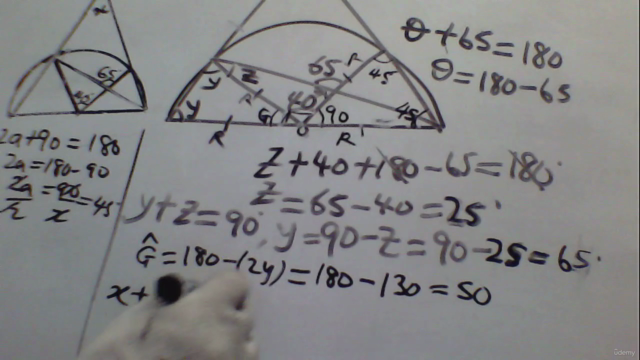 x
65
45
2a+90=180
2a=180-90
2a=90=45
2 2
y
y
z
r
R
G
40
65
r
45
45
90
R
θ+65=180
θ=180-65
z+40+180-65=180
z=65-40=25
y+z=90, y=90-z=90-25=65
Ĝ=180-(2y)=180-130=50
x+
Udemy